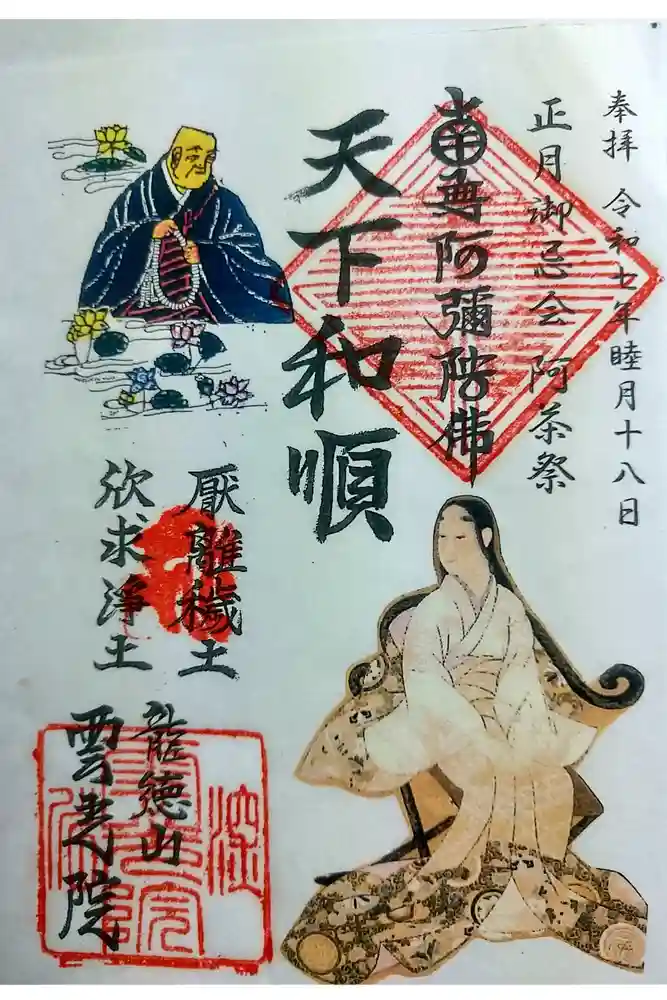 奉拝 令和七年睦月十八日
正月御忌会 阿茶祭
南無阿彌陀佛
天下和順
厭離穢土
欣求淨土
龍徳山
雲光院